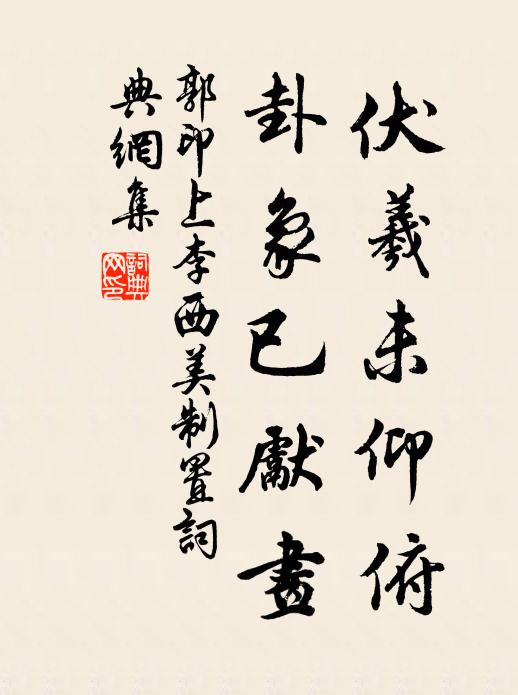 伏羲未仰俯
卦象已獻畫
郭印上李西美制置詞
典網集
詞典網印